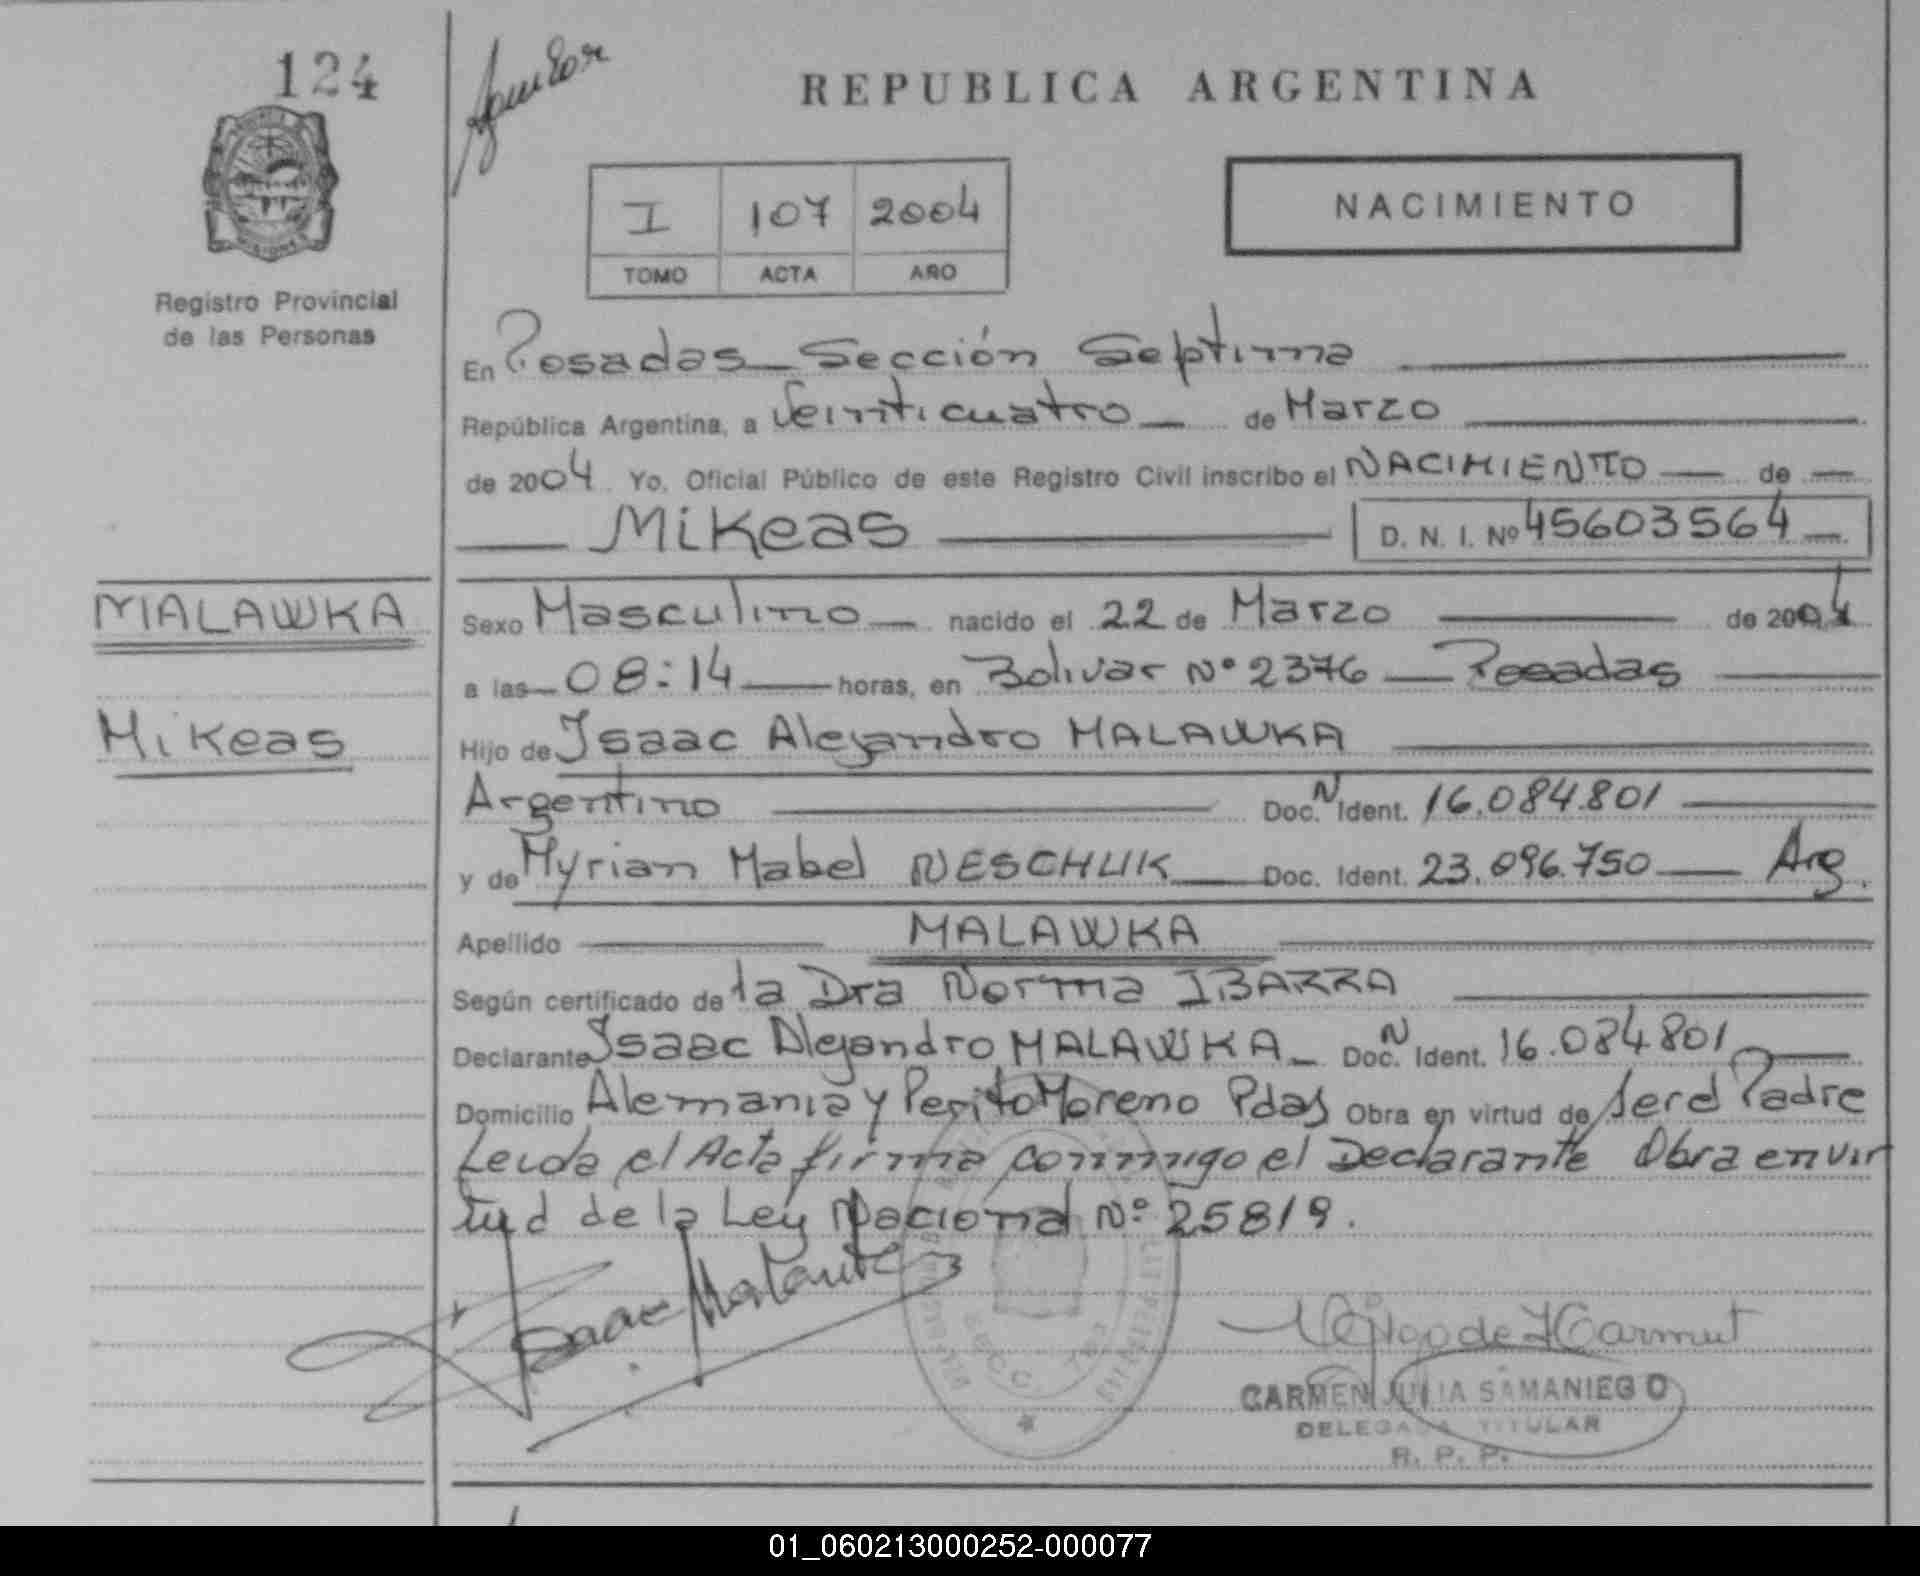 124
REPUBLICA ARGENTINA
I 107 2004
TOMO ACTA AÑO
NACIMIENTO
Registro Provincial
de las Personas
En Posadas Sección Septima
República Argentina, a Veinticuatro de Marzo
de 2004 Yo, Oficial Público de este Registro Civil inscribo el NACIMIENTO de
Mikeas D. N. I. Nº 45603564
MALAWKA
Mikeas
Sexo Masculino nacido el 22 de Marzo de 2004
a las 08:14 horas, en Bolivar Nº 2376 Posadas
Hijo de Isaac Alejandro MALAWKA
Argentino Doc. N Ident. 16.084.801
y de Myrian Mabel NESCHUK Doc. Ident. 23.096.750 Arg.
Apellido MALAWKA
Según certificado de la Dra Norma IBARRA
Declarante Isaac Alejandro MALAWKA Doc. N Ident. 16.084801
Domicilio Alemania y Perito Moreno Pdas Obra en virtud de Ser el Padre
Leida el Acta firma conmigo el Declarante Obra en vir
tud de la Ley Nacional Nº 25819.
Isaac Malawka
CARMEN JULIA SAMANIEGO
DELEGADA TITULAR
R. P. P.
01_060213000252-000077